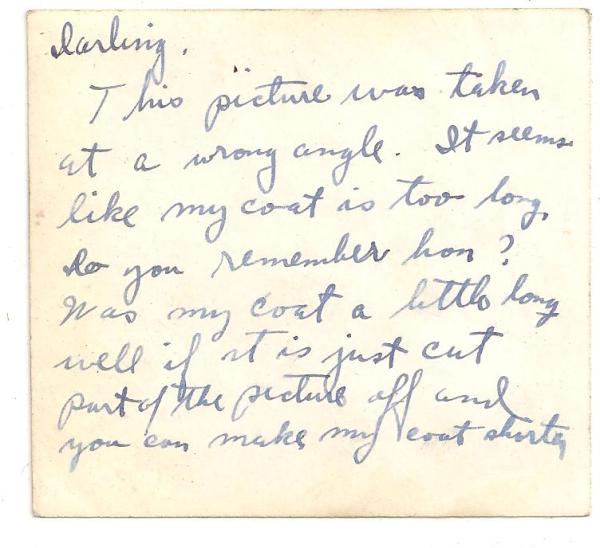 Darling.
This picture was taken
at a wrong angle. It seems
like my coat is too long,
Do you remember hon?
Was my coat a little long
well if it is just cut
part of the picture off and
you can make my coat shorter